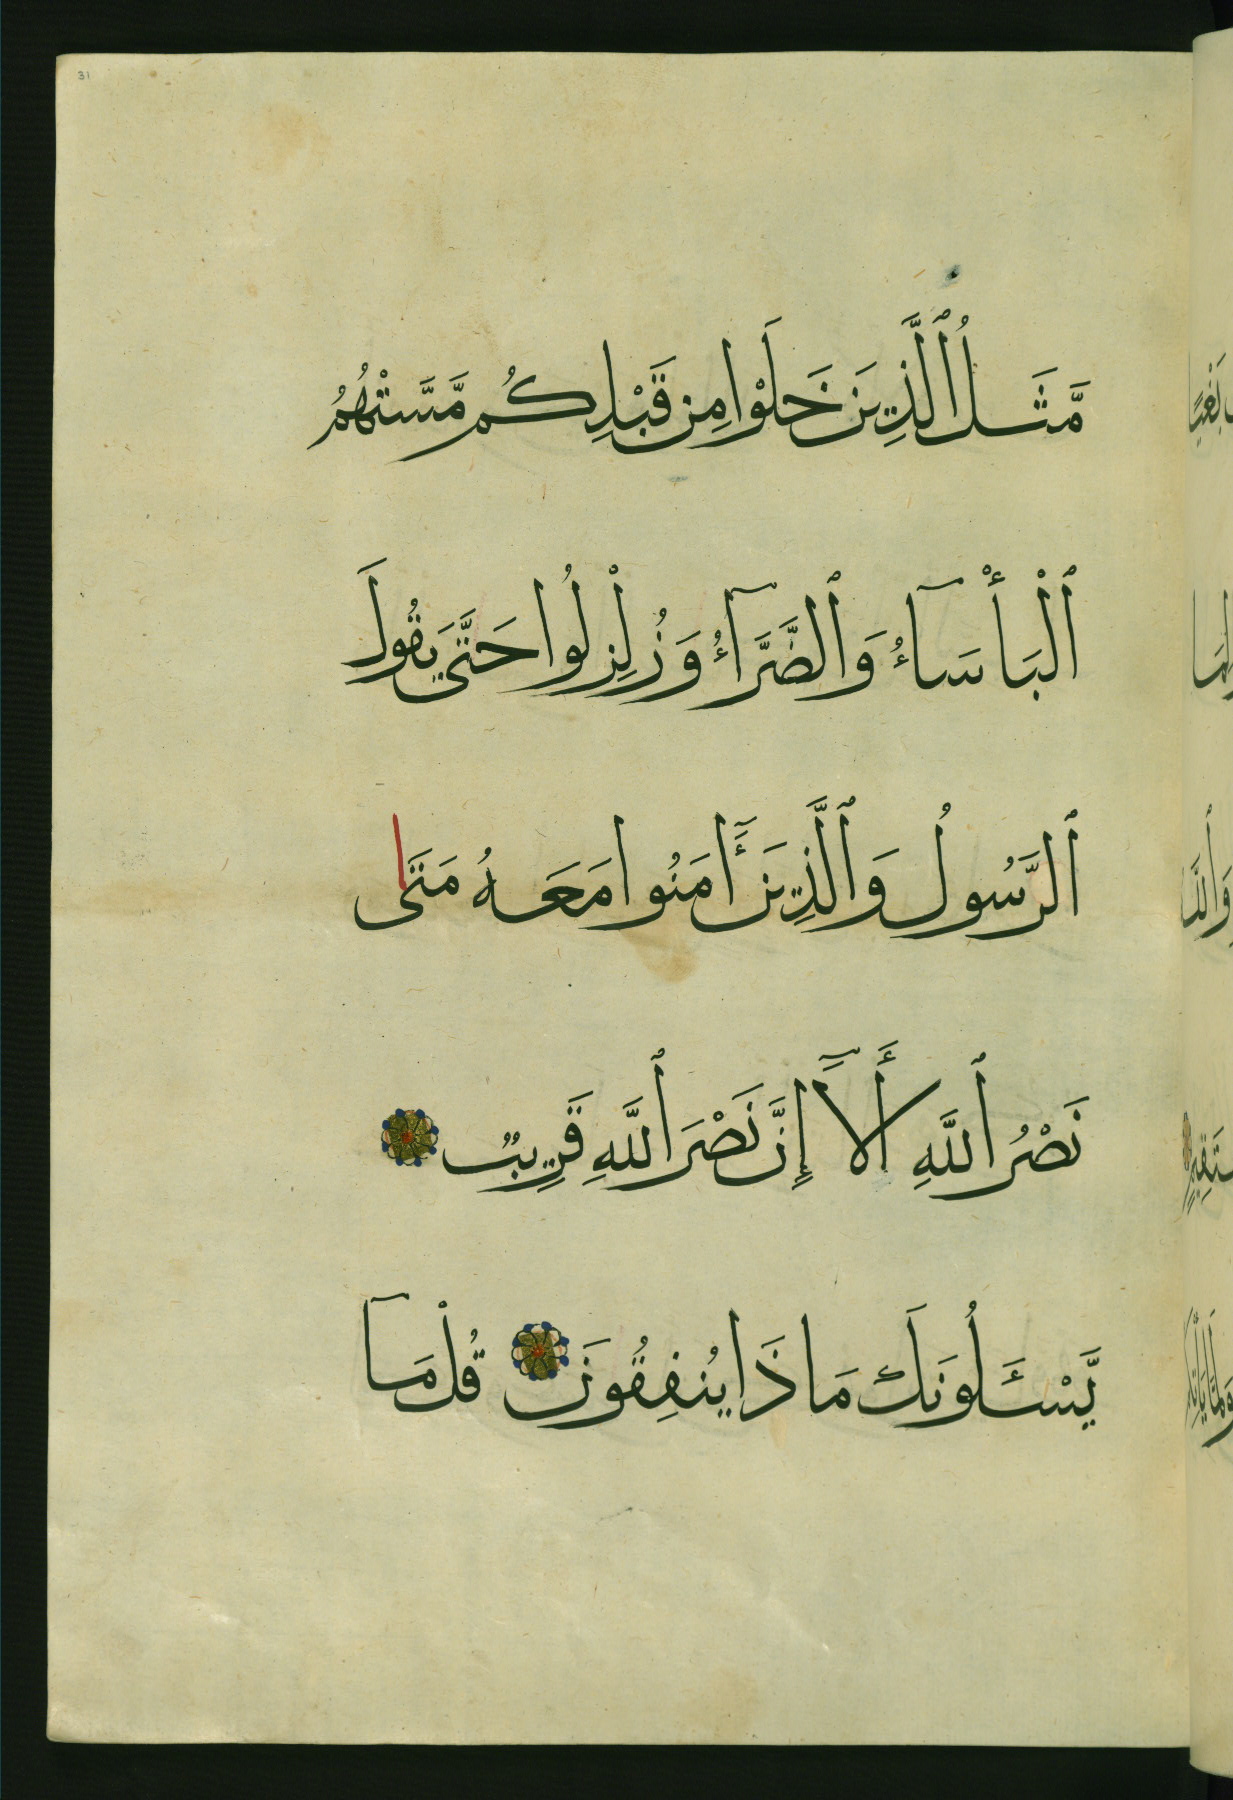 مَّثَلُ ٱلَّذِينَ خَلَوْا مِن قَبْلِكُم مَّسَّتْهُمُ
ٱلْبَأْسَآءُ وَٱلضَّرَّآءُ وَزُلْزِلُوا حَتَّى يَقُولَ
ٱلرَّسُولُ وَٱلَّذِينَ ءَامَنُوا مَعَهُ مَتَى
نَصْرُ ٱللَّهِ أَلَآ إِنَّ نَصْرَ ٱللَّهِ قَرِيبٌ
يَّسْـَٔلُونَكَ مَاذَا يُنفِقُونَ قُلْ مَآ
31